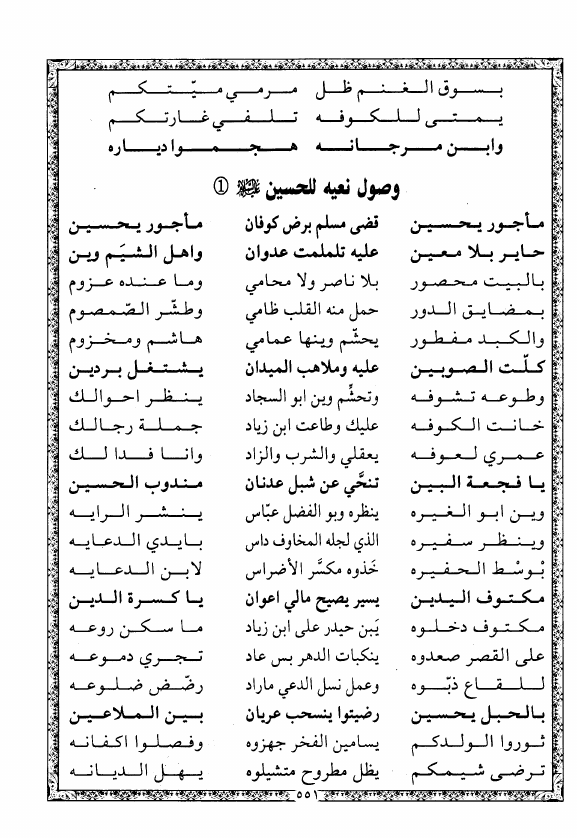 بسوق الغنم ظل مرمي ميّتكم
يمتى للكوفه تلفي غارتكم
وابن مرجانه هجموا دياره
وصول نعيه للحسين ①
مأجور يحسين قضى مسلم برض كوفان مأجور يحسين
حاير بلا معين عليه تلملمت عدوان واهل الشيَم وين
بالبيت محصور بلا ناصر ولا محامي وما عنده عزوم
بمضايق الدور حمل منه القلب ظامي وطشّر الصّمصوم
والكبد مفطور يحشّم وينها عمامي هاشم ومخزوم
كلّت الصوبين عليه وملاهب الميدان يشتغل بردين
وطوعه تشوفه وتحشّم وين ابو السجاد ينظر احوالك
خانت الكوفه عليك وطاعت ابن زياد جملة رجالك
عمري لعوفه يعقلي والشرب والزاد وانا فدا لك
يا فجعة البين تنخّي عن شبل عدنان مندوب الحسين
وين ابو الغيره ينظره وبو الفضل عبّاس ينشر الرايه
وينظر سفيره الذي لجله المخاوف داس بايدي الدعايه
بْوسْط الحفيره خَذوه مكسَّر الأضراس لابن الدعايه
مكتوف اليدين يسير يصيح مالي اعوان يا كسرة الدين
مكتوف دخلوه يَبن حيدر على ابن زياد ما سكن روعه
على القصر صعدوه ينكبات الدهر بس عاد تجري دموعه
للقاع ذبّوه وعمل نسل الدعي ماراد رضّض ضلوعه
بالحبل يحسين رضيتوا ينسحب عريان بين الملاعين
ثوروا الولدكم يسامين الفخر جهزوه وفصلوا اكفانه
ترضى شيمكم يظل مطروح متشيلوه يهل الديانه
٥٥١